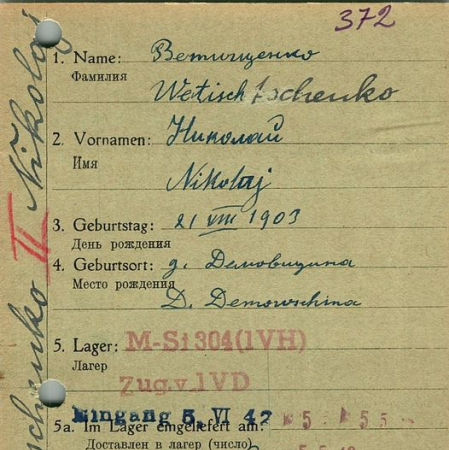 372
1. Name: Ветищенко
Фамилия
Wetischtschenko
2. Vornamen: Николай
Имя
Nikolaj
3. Geburtstag: 21 VIII 1903
День рождения
4. Geburtsort: д. Демовщина
Место рождения
D. Demowschina
5. Lager: M-St 304 (IVH)
Лагер
Zug. v. IVD
Eingang 5. VI 42
5a. Im Lager eingeliefert am:
Доставлен в лагер (число)
schenko II Nikolaj